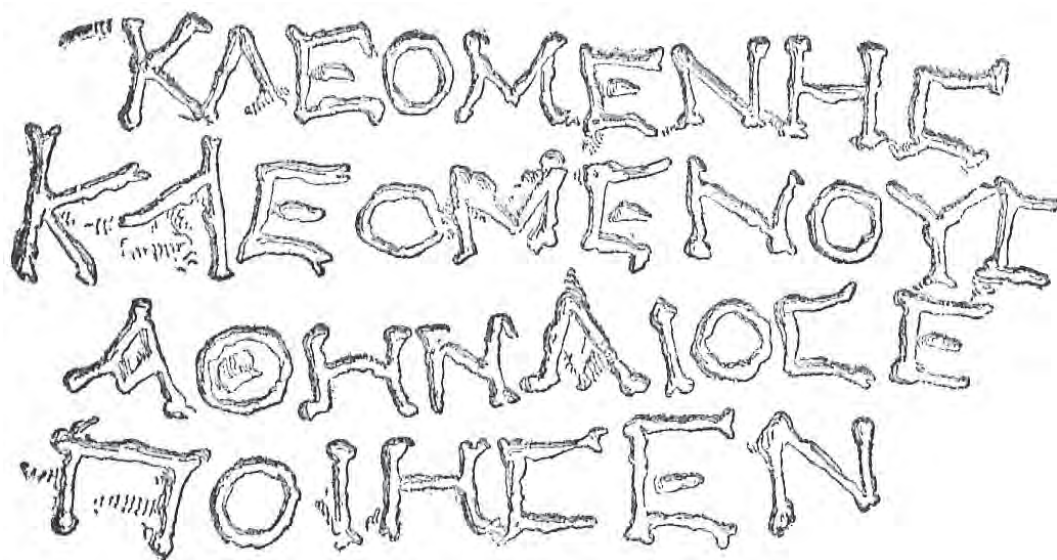 ΚΛΕΟΜΕΝΗΣ
ΚΛΕΟΜΕΝΟΥΣ
ΑΘΗΝΑΙΟΣΕ
ΠΟΙΗΣΕΝ